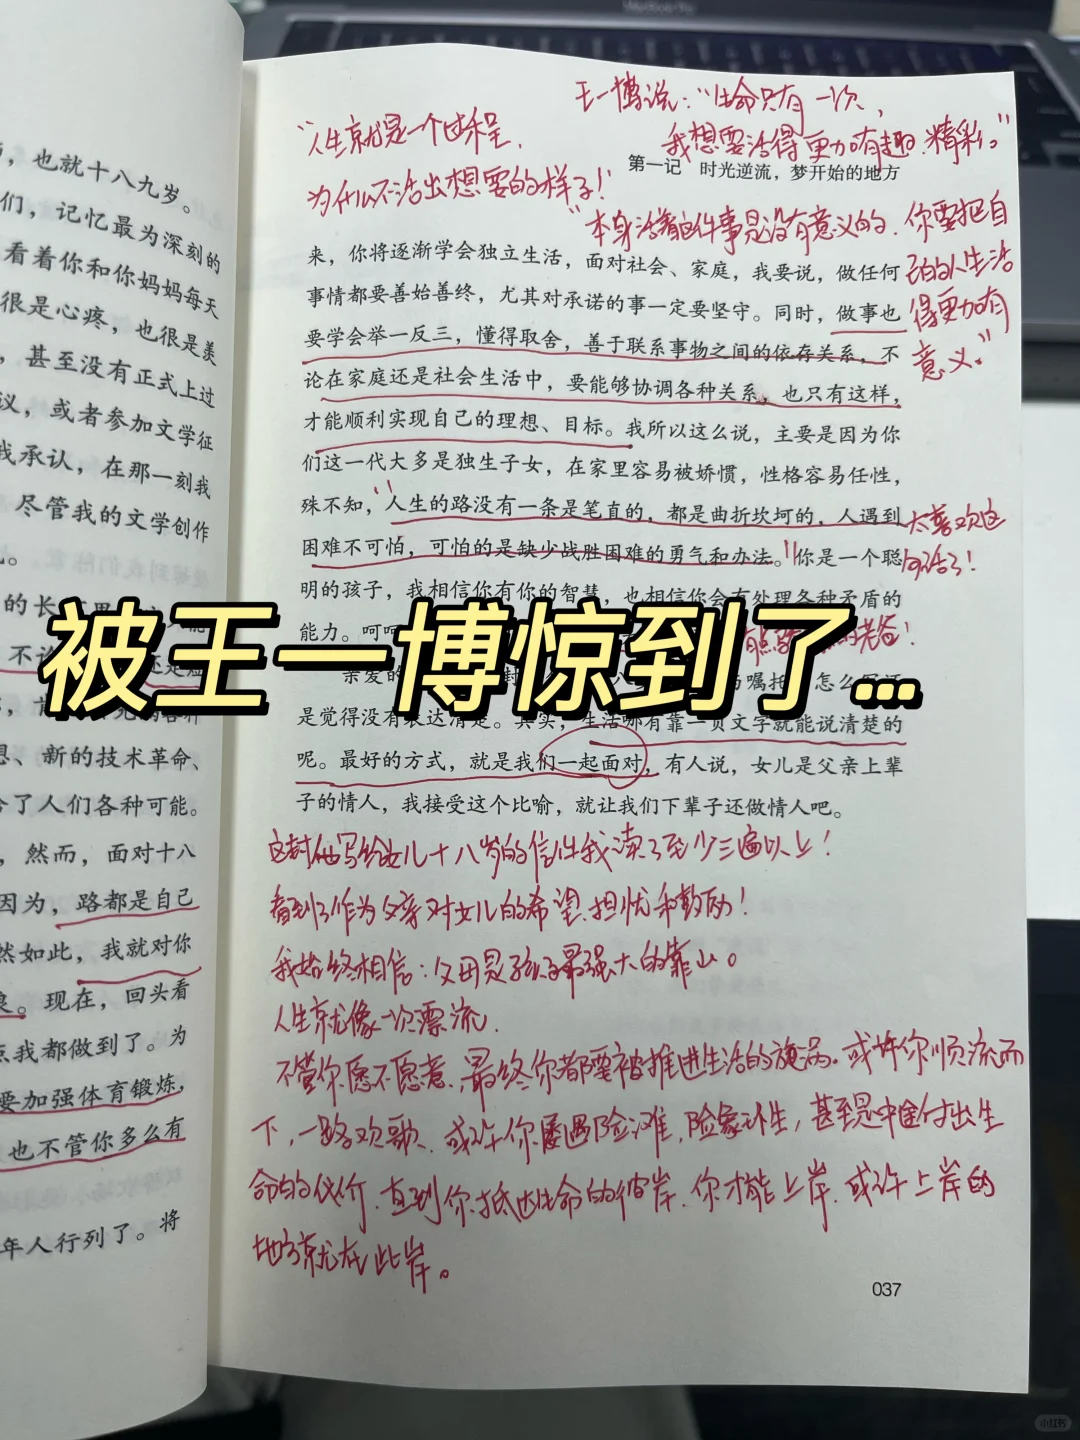 MacBook Pro
，也就十八九岁。
们，记忆最为深刻的
看着你和你妈妈每天
很是心疼，也很是羡
，甚至没有正式上过
议，或者参加文学征
我承认，在那一刻我
尽管我的文学创作
。
的长
不论
还是
想、新的技术革命、
合了人们各种可能。
，然而，面对十八
因为，路都是自己
然如此，我就对你
。现在，回头看
点我都做到了。为
要加强体育锻炼，
也不管你多么有
年人行列了。将
王一博说："生命只有一次，
我想要活得更加有趣、精彩。"
"人生就是一个过程，
为什么不活出想要的样子！
第一记 时光逆流，梦开始的地方
"本身活着这件事是没有意义的，你要把自
己的人生活
得更加有
意义。"
来，你将逐渐学会独立生活，面对社会、家庭，我要说，做任何
事情都要善始善终，尤其对承诺的事一定要坚守。同时，做事也
要学会举一反三，懂得取舍，善于联系事物之间的依存关系，不
论在家庭还是社会生活中，要能够协调各种关系，也只有这样，
才能顺利实现自己的理想、目标。我所以这么说，主要是因为你
们这一代大多是独生子女，在家里容易被娇惯，性格容易任性，
殊不知，"人生的路没有一条是笔直的，都是曲折坎坷的，人遇到
困难不可怕，可怕的是缺少战胜困难的勇气和办法。"你是一个聪
太喜欢这
句话了！
明的孩子，我相信你有你的智慧，也相信你会有处理各种矛盾的
能力。呵呵
有点
的老爸！
被王一博惊到了...
亲爱的
嘱托
怎么
是觉得没有表达清楚。其实，生活哪有靠一页文字就能说清楚的
呢。最好的方式，就是我们一起面对，有人说，女儿是父亲上辈
子的情人，我接受这个比喻，就让我们下辈子还做情人吧。
这封他写给女儿十八岁的信件我读了至少三遍以上！
看到了作为父亲对女儿的希望、担忧和鼓励！
我始终相信：父母是孩子最强大的靠山。
人生就像一次漂流，
不管你愿不愿意，最终你都要被推进生活的旋涡。或许你顺流而
下，一路欢歌、或许你屡遇险滩，险象环生，甚至是中途付出生
命的代价，直到你抵达生命的彼岸，你才能上岸，或许上岸的
地方就在此岸。
037
小红书